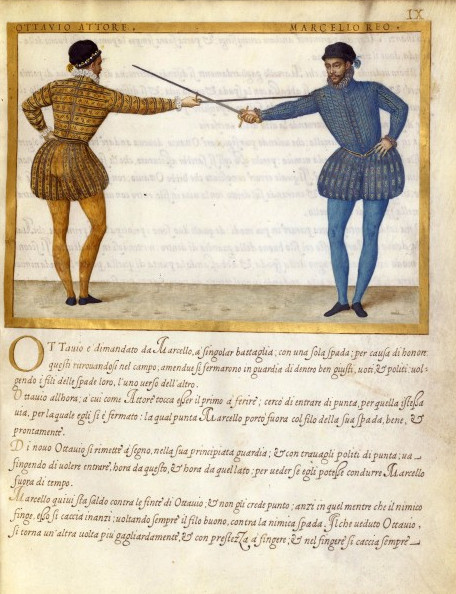 IX
OTTAVIO ATTORE. MARCELLO REO.
OTTavio e dimandato da Marcello, à singolar battaglia; con una sola spada; per causa di honore
questi ritrovandosi nel campo; amendue si fermarono in guardia di dentro ben giusti, uoti, & politi: uol-
gendo i fili delle spade loro, l'uno verso dell'altro.
Ottauio allhora; à cui come Attore tocca esser il primo à ferire; cercò di entrare di punta, per quella istessa
uia, per laquale egli si è fermato: la qual punta Marcello portò fuora col filo della sua spada, bene, &
prontamente.
Di nouo Ottauio si rimette à segno, nella sua principiata guardia; & con trauagli politi di punta; ua
fingendo di uolere entrare, hora da questo, & hora da quel lato; per ueder se egli potesse condurre Marcello
fuora di tempo.
Marcello quiui sta saldo contra le finte di Ottauio; & non gli crede punto; anzi in quel mentre che il nimico
finge, esso si caccia inanzi; uoltando sempre il filo buono, contra la nimica spada. Il che ueduto Ottauio,
si torna un'altra uolta più gagliardamente, & con prestezza à fingere; & nel fingere si caccia sempre